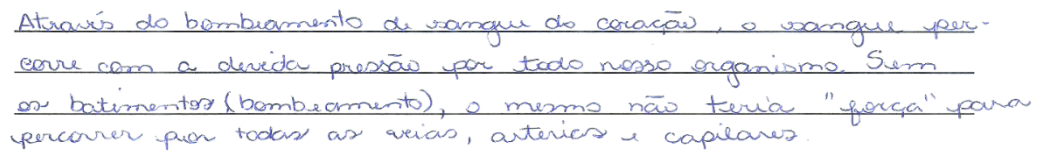 Através do bombeamento de sangue do coração, o sangue per-
corre com a devida pressão por todo nosso organismo. Sem
os batimentos (bombeamento), o mesmo não teria "força" para
percorrer por todas as veias, arterias e capilares.